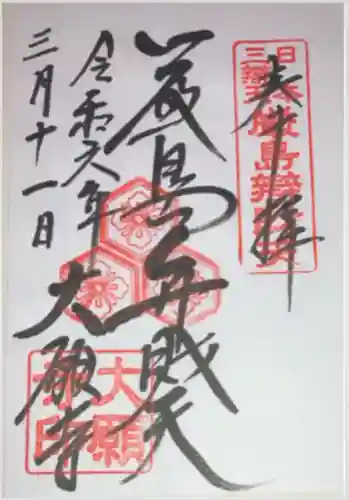 奉拝
日本三辨天厳島辨財天
厳島弁財天
令和六年
三月十一日
大願寺
大願寺印